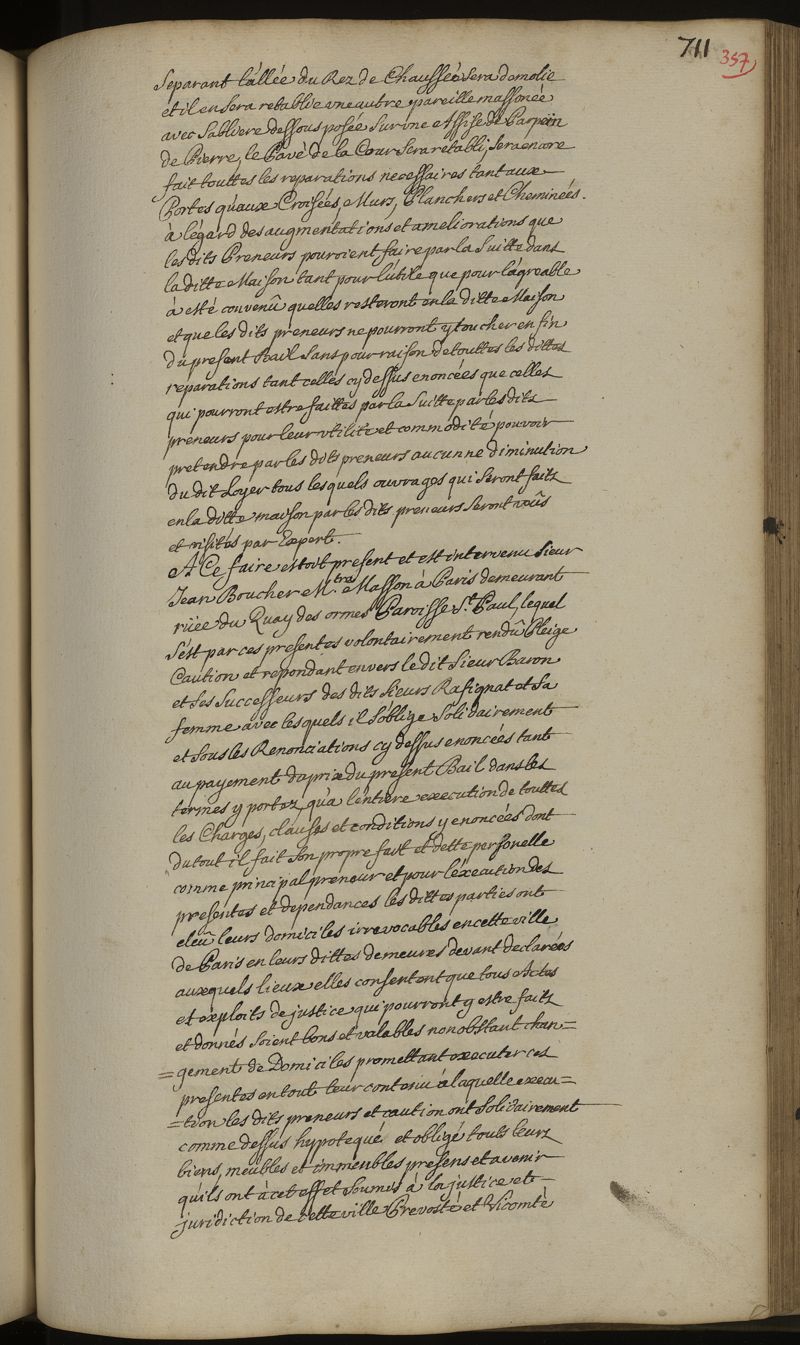 711 357
Separant l'allée du Rez de Chaussée sera demolie
et il en sera retablie une autre pareille massonée
avec Sabliere dessous posée sur une Assise de Parpein
de Pierre, le Pavé de la Cour sera retabli, sera encore
fait touttes les reparations necessaires tant aux
Portes qu'aux Croisées, Murs, Planchers et Cheminées.
à légard des augmentations et ameliorations que
les dits Preneurs pouroient faire par la Suitte dans
la ditte Maison tant pour lutile que pour lágreable
à esté convenû quelles resteront en la ditte Maison
et que les dits preneurs ne pourront y toucher en fin
du present Bail sans pour raison de touttes les dittes
reparations tant celles cy dessus enoncées que celles
qui pourront estre faittes par la Suitte par les dits
preneurs pour leur utilité et commodité pouvoir
pretendre par les dits preneurs aucunne diminution
du dit Loyer tous lesquels ouvrages qui seront faits
en la ditte maison par les dits preneurs seront vûs
et visités par Expert.
A Ce faire estoit present et est intervenu Sieur
Jean Boucher M.tre Masson à Paris demeurant
rüe du Quay des ormes Paroisse S.t Paul, lequel
s'est par ces presentes volontairement rendû Pleige
Caution et repondant envers le dit Sieur Baron
et Ses Successeurs des dits Sieurs Rasignat et Sa
femme avec lesquels il s'oblige Solidairement
et sous les Renonciations cy dessus enoncées tant
au payement du prix du present Bail dans les
termes y portez, qu'a l'entiere execution de touttes
les Charges, clauses et conditions y enoncées dont
du tout il fait son propre fait et dette personelle
comme principal preneur et pour l'éxecution des
presentes et dependances les dittes parties ont
eleû leurs domiciles irrevocables en cette ville
de Paris en leurs dittes demeures devant declarées
auxquels lieux elles consentent que tous Actes
et exploits de justice qui pourront y estre faits
et donnés soient bons et valables nonobstant chan=
=gement de Domiciles promettant executer ces
presentes en tout leur contenu à laquelle execu=
=tion les dits preneurs et caution ont Solidairement
comme dessus hypotequé et obligé touts leurs
biens, meubles et immeubles presens et avenir
qu'ils ont à cet effet Soumis à la justice et
juridiction de cette ville Prevosté et Vicomté